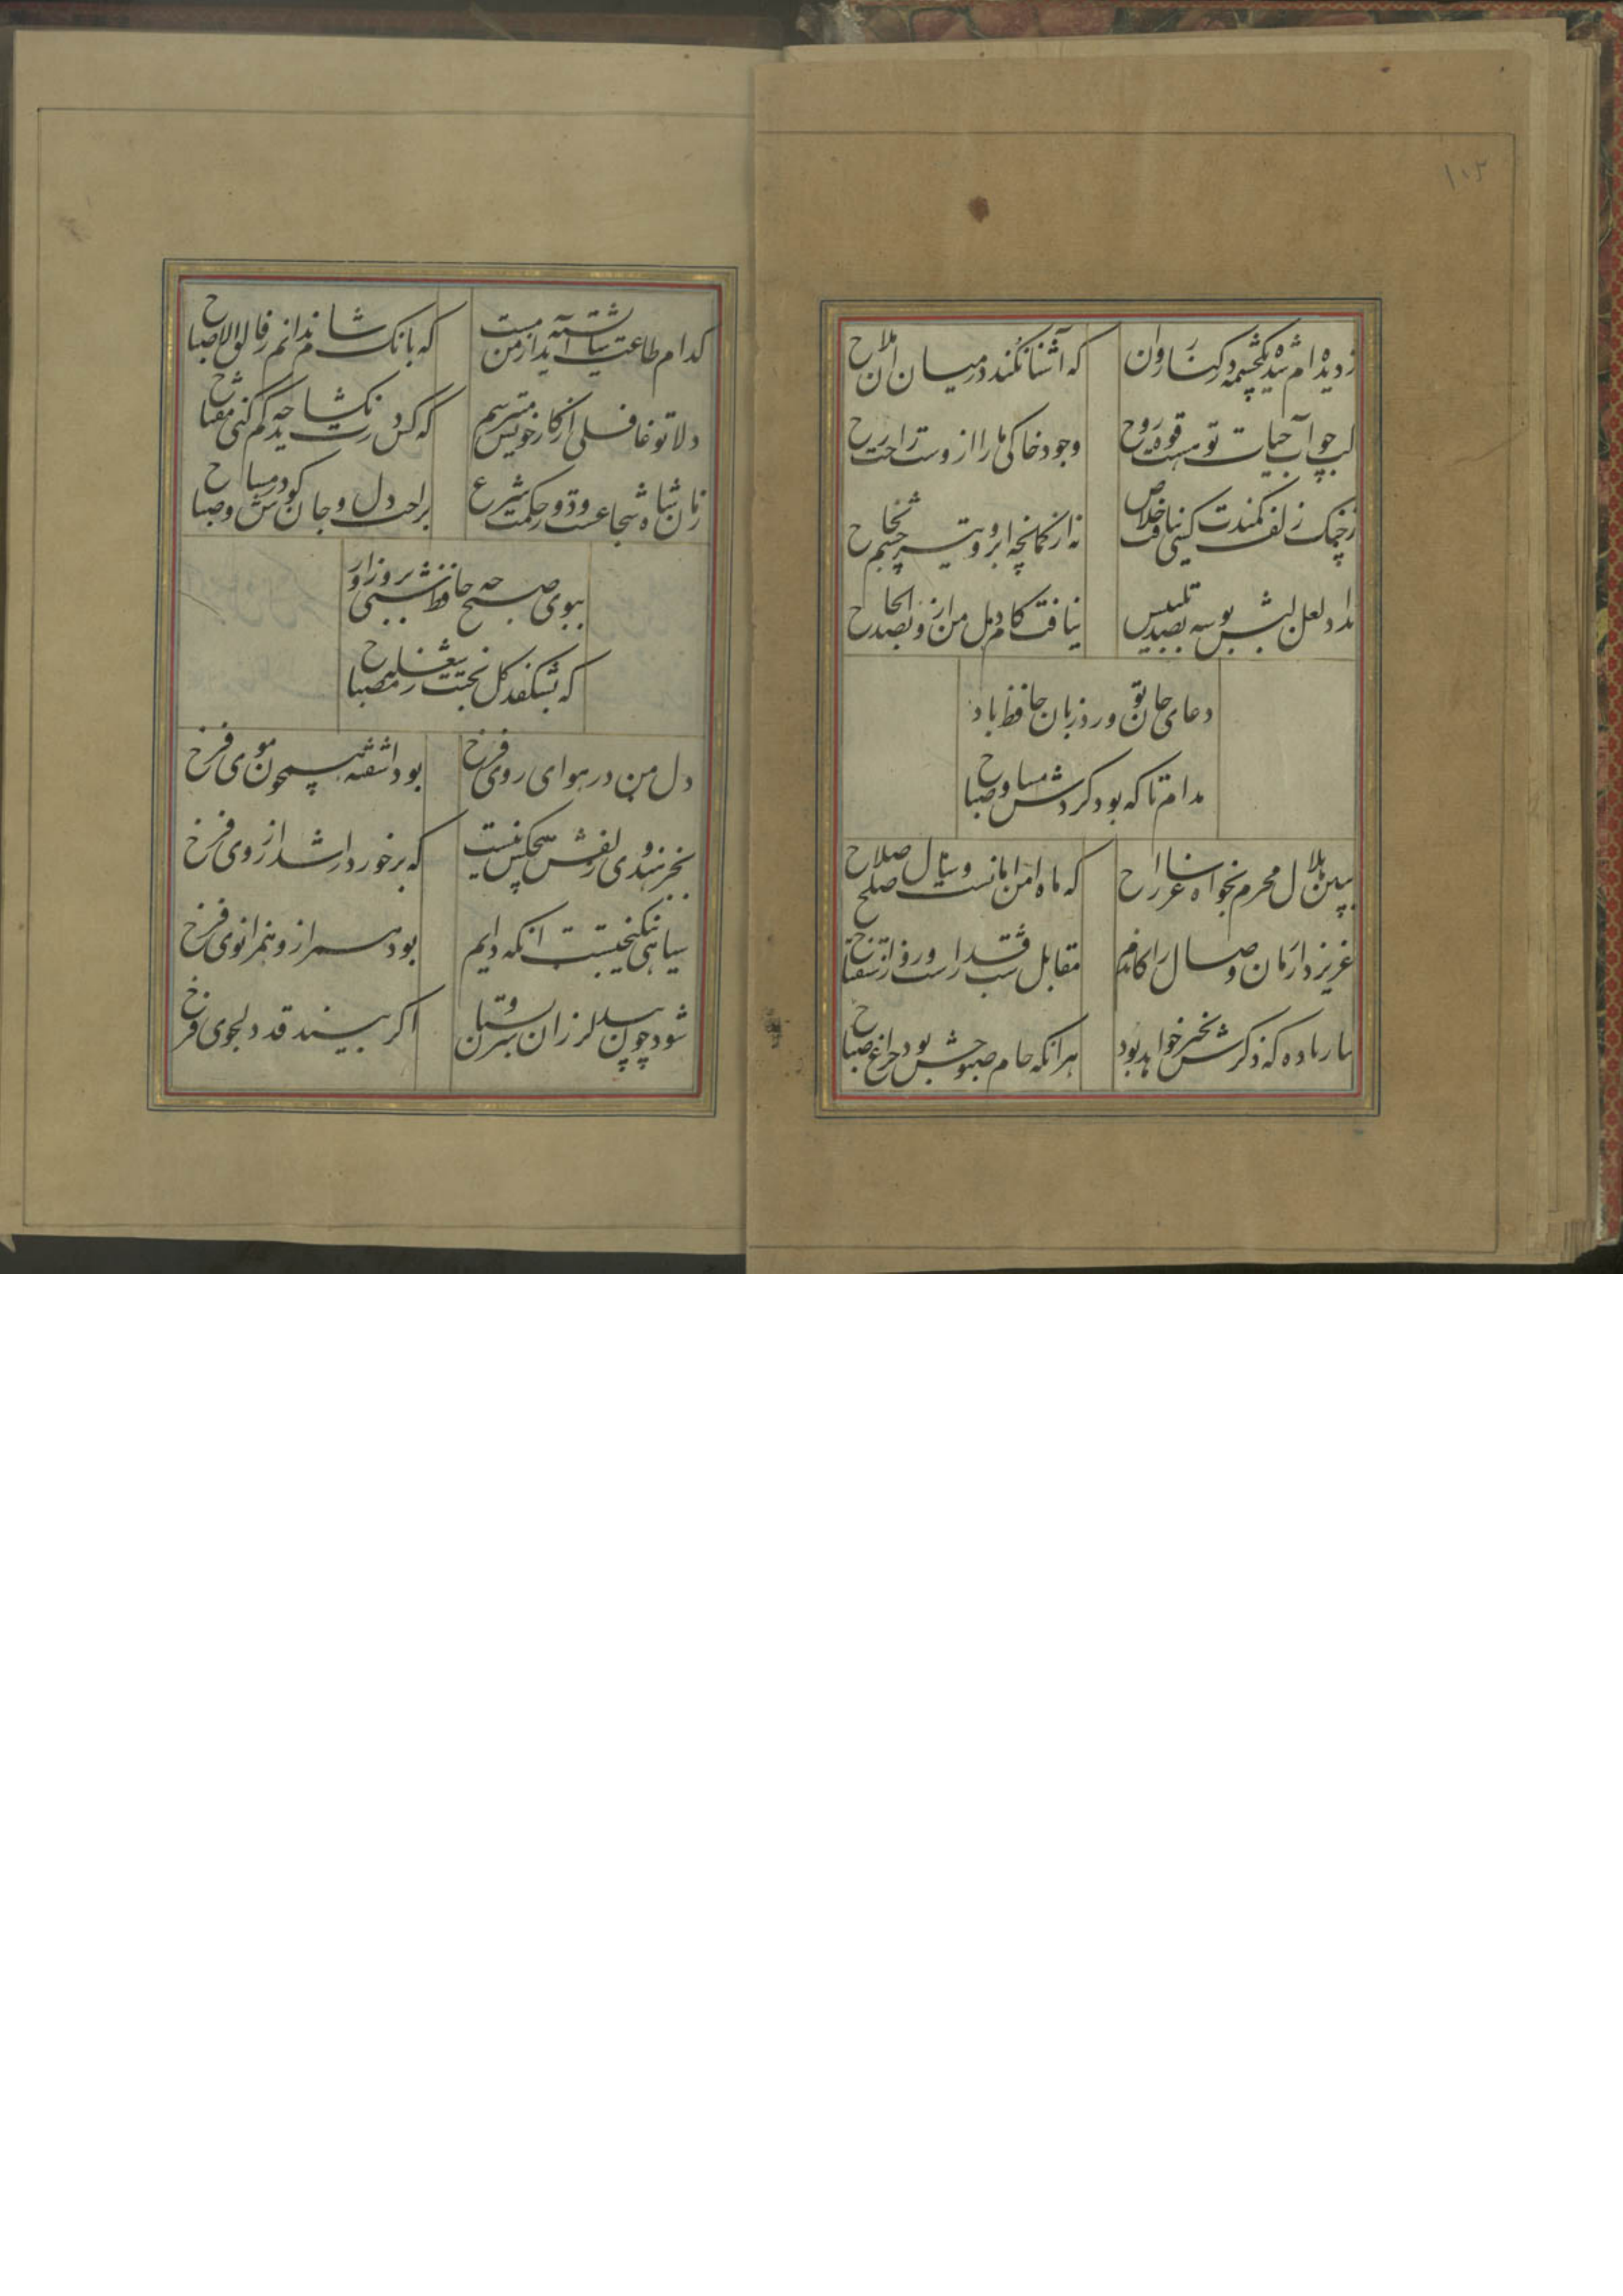 ۱۰۲
ز دیده‌ام شده یکچشمه در کنار روان
که آشنا نکند در میان آن ملاح
لب چو آب حیات تو هست قوت روح
وجود خاکی ما را از وست راحت راح
ز چنگ زلف کمندت کسی نیافت خلاص
نه از کمانچه ابرو و تیر چشم نجاح
نداد لعل لبش بوسه بصد تلبیس
نیافت کام دل من ازو بصد الحاح
دعای جان تو ورد زبان حافظ باد
مدام تا که بود گردش مسا و صباح
ببین هلال محرم بخواه ساغر راح
که ماه امن امانست و سال صلح صلاح
عزیز دار زمان وصال را کاندم
مقابل شب قدر است و روز استفتاح
بیار باده که ذکرش بخیر خواهد بود
هر آنکه جام صبوحش بود چراغ صباح
کدام طاعت شایسته آید از من مست
که بانک شام ندانم ز فالق الاصباح
دلا تو غافلی از کار خویش میترسم
که کس درت نکشاید چه کم کنی مفتاح
زمان شاه شجاعست و دور حکمت شرع
براحت دل و جان کوش در مسا و صباح
ببوی صبح چه حافظ شبی بروز آور
که بشکفد گل بختت ز مصباح
دل من در هوای روی فرخ
بود آشفته همچون موی فرخ
بجز هندوی زلفش هیچکس نیست
که برخوردار شد از روی فرخ
سیاهی نیکبختست آنکه دایم
بود همراز و همزانوی فرخ
شود چون بید لرزان سرو بستان
اگر بیند قد دلجوی فرخ